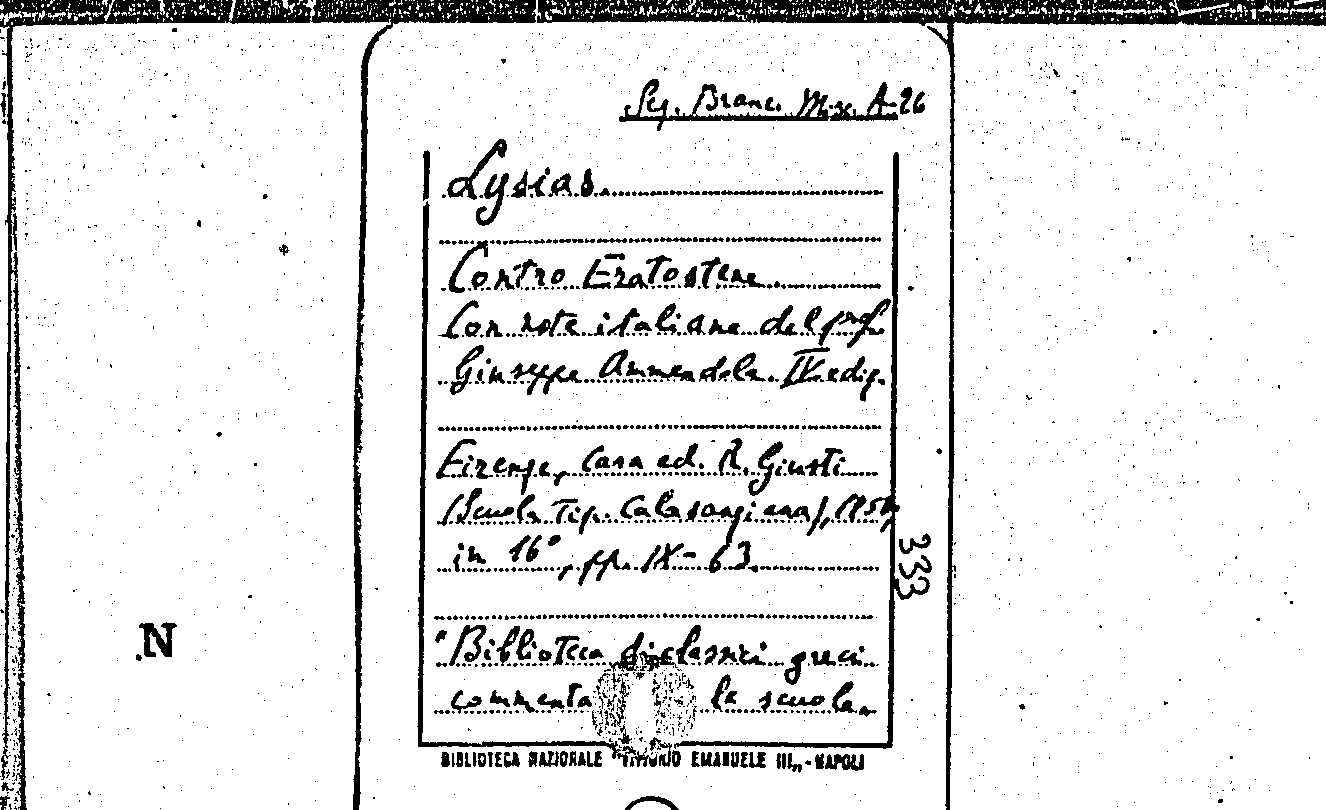 Sez. Branc. Misc. A-26
Lysias.
Contro Eratostene.
Con note italiane del prof.
Giuseppe Ammendola. IV ediz.
Firenze, Casa ed. R. Giusti
(Scuola Tip. Calasanziana),
in 16°, pp. IX-63.
333
"Biblioteca di classici greci
commenta la scuola"
N
BIBLIOTECA NAZIONALE "VITTORIO EMANUELE III" - NAPOLI